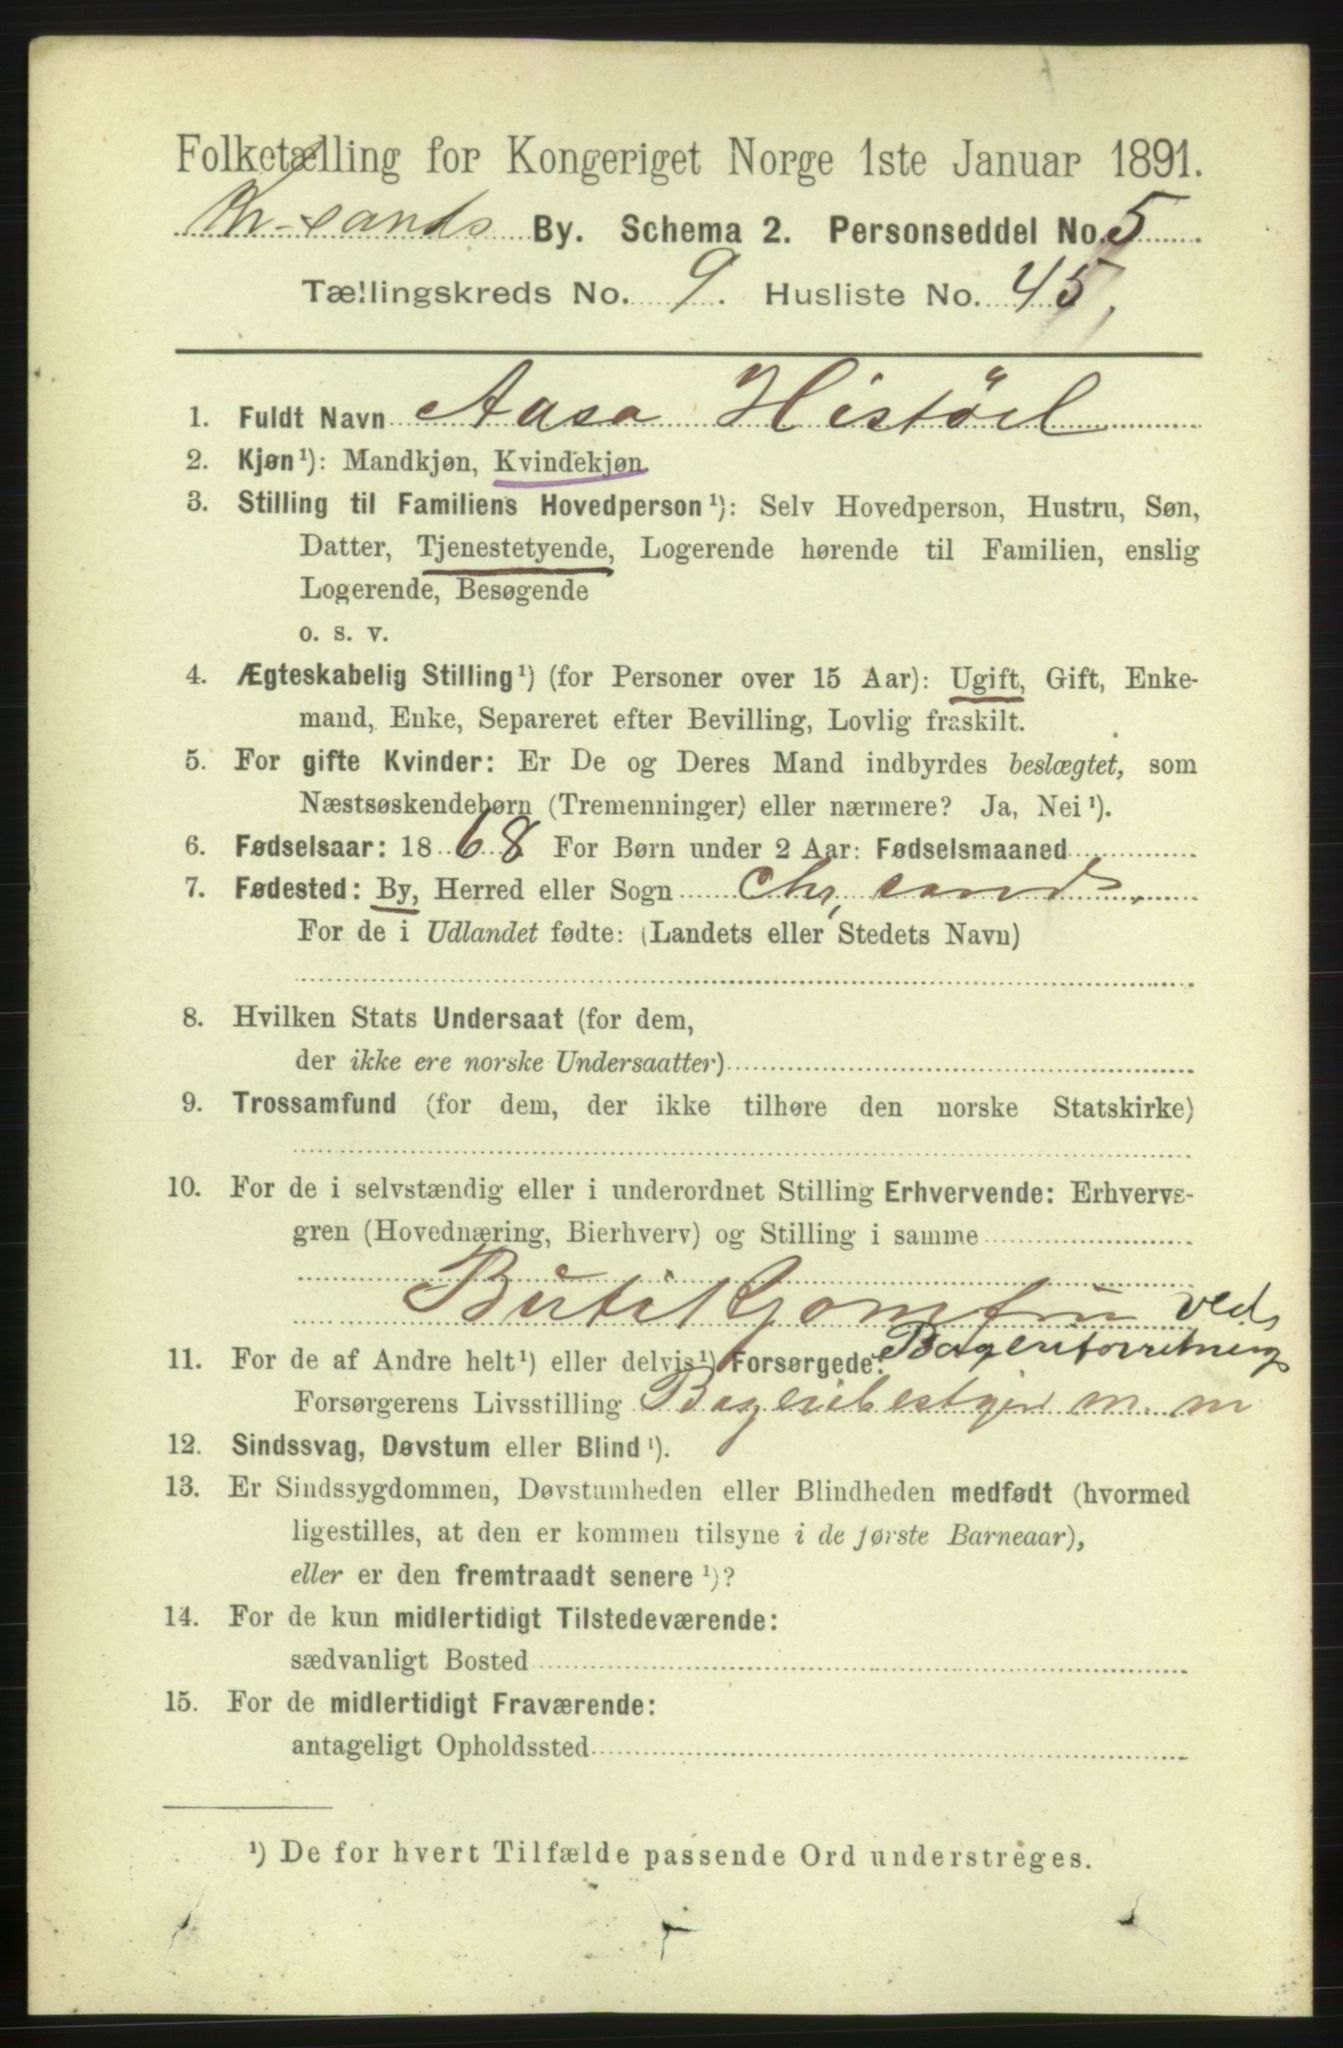 Folketælling for Kongeriget Norge 1ste Januar 1891.
Kr-sands By. Schema 2. Personseddel No. 5
Tællingskreds No. 9. Husliste No. 45.
1. Fuldt Navn Aasa Histöel
2. Kjøn¹): Mandkjøn, Kvindekjøn
3. Stilling til Familiens Hovedperson¹): Selv Hovedperson, Hustru, Søn,
Datter, Tjenestetyende, Logerende hørende til Familien, enslig
Logerende, Besøgende
o. s. v.
4. Ægteskabelig Stilling¹) (for Personer over 15 Aar): Ugift, Gift, Enke-
mand, Enke, Separeret efter Bevilling, Lovlig fraskilt.
5. For gifte Kvinder: Er De og Deres Mand indbyrdes beslægtet, som
Næstsøskendebørn (Tremenninger) eller nærmere? Ja, Nei¹).
6. Fødselsaar: 1868 For Børn under 2 Aar: Fødselsmaaned
7. Fødested: By, Herred eller Sogn Chr, sand.
For de i Udlandet fødte: (Landets eller Stedets Navn)
8. Hvilken Stats Undersaat (for dem,
der ikke ere norske Undersaatter)
9. Trossamfund (for dem, der ikke tilhøre den norske Statskirke)
10. For de i selvstændig eller i underordnet Stilling Erhvervende: Erhvervs-
gren (Hovednæring, Bierhverv) og Stilling i samme
Butikjomfru ved
Bageriforretning
11. For de af Andre helt¹) eller delvis¹) Forsørgede:
Forsørgerens Livsstilling m. m
12. Sindssvag, Døvstum eller Blind¹).
13. Er Sindssygdommen, Døvstumheden eller Blindheden medfødt (hvormed
ligestilles, at den er kommen tilsyne i de første Barneaar),
eller er den fremtraadt senere¹)?
14. For de kun midlertidigt Tilstedeværende:
sædvanligt Bosted
15. For de midlertidigt Fraværende:
antageligt Opholdssted
¹) De for hvert Tilfælde passende Ord understreges.